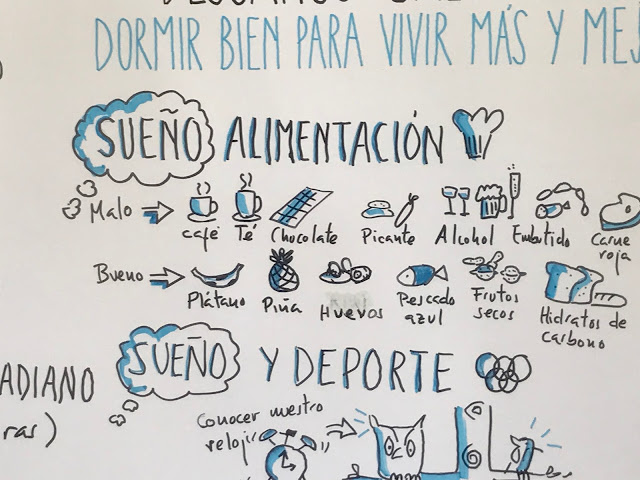 DORMIR BIEN PARA VIVIR MÁS Y MEJ
SUEÑO ALIMENTACIÓN
Malo café Té Chocolate Picante Alcohol Embutido Carne roja
Bueno Plátano Piña Huevos Pescado azul Frutos secos Hidratos de carbono
SUEÑO Y DEPORTE
ADIANO
ras)
Conocer nuestro
reloj